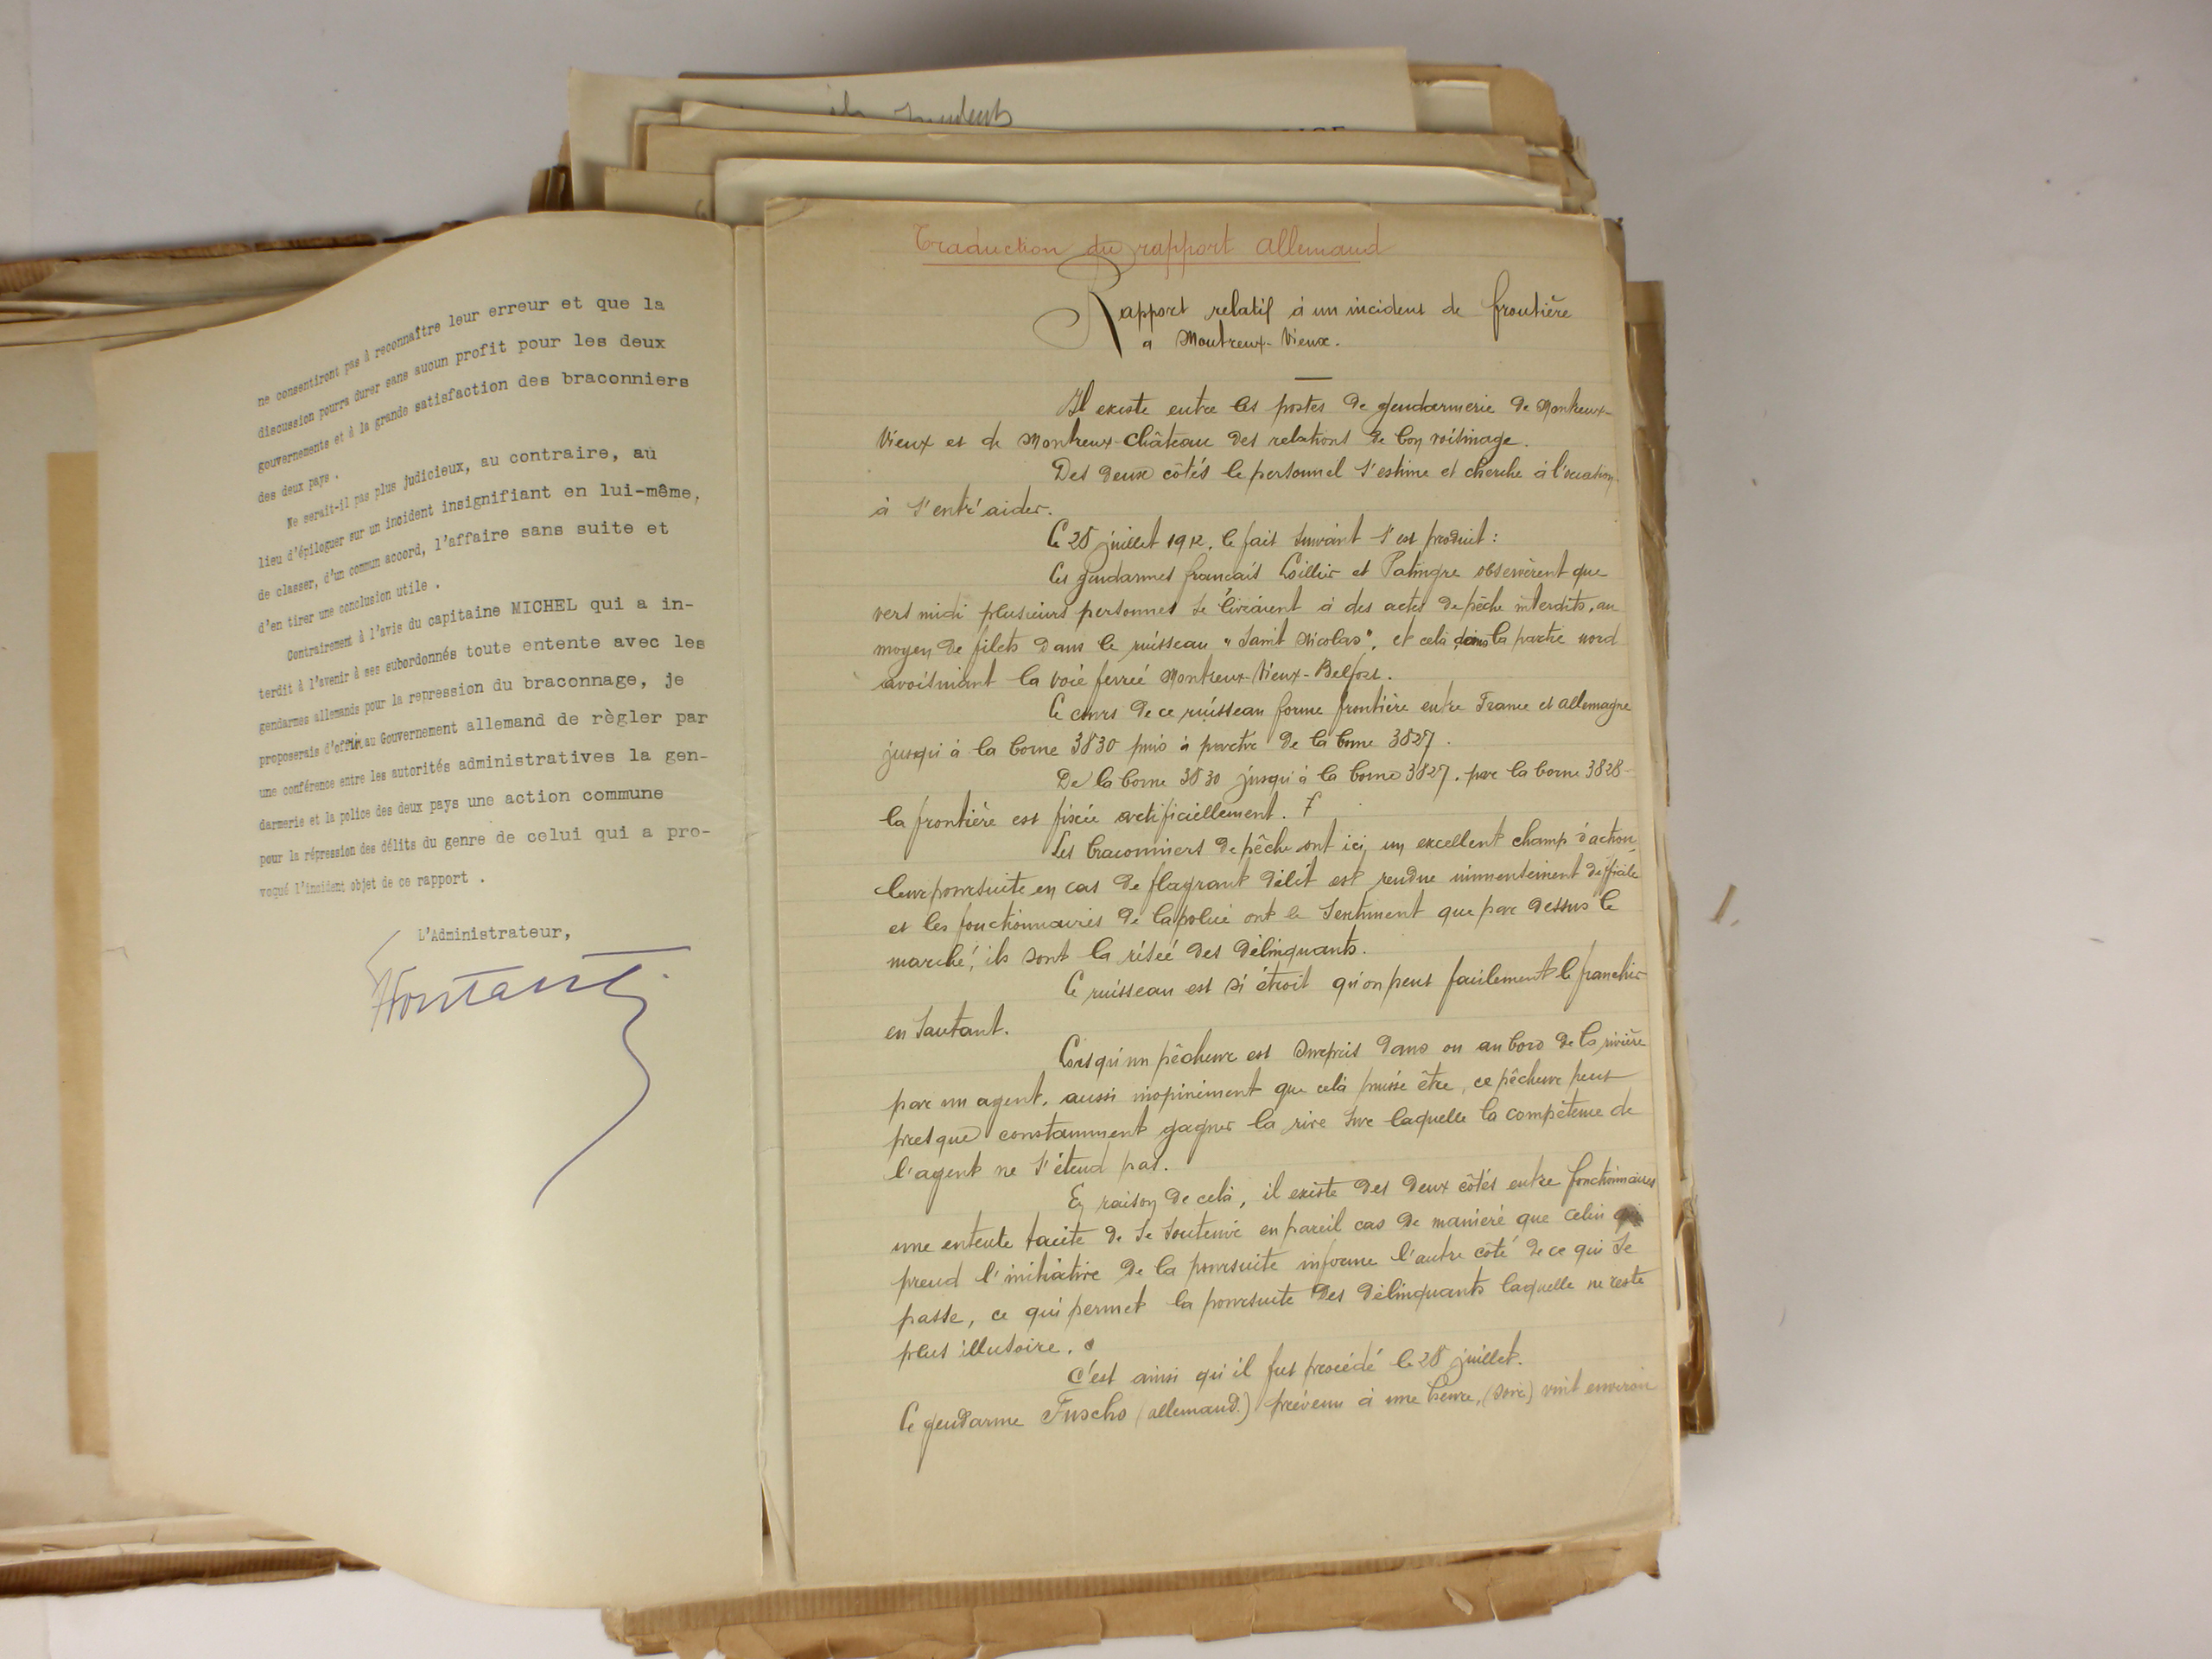 ne consentiront pas à reconnaître leur erreur et que la
discussion pourra durer sans aucun profit pour les deux
gouvernements et à la grande satisfaction des braconniers
des deux pays .
Ne serait-il pas plus judicieux, au contraire, au
lieu d'épiloguer sur un incident insignifiant en lui-même,
de classer, d'un commun accord, l'affaire sans suite et
d'en tirer une conclusion utile .
Contrairement à l'avis du capitaine MICHEL qui a in-
terdit à l'avenir à ses subordonnés toute entente avec les
gendarmes allemands pour la repression du braconnage, je
proposerais d'offrir au Gouvernement allemand de règler par
une conférence entre les autorités administratives la gen-
darmerie et la police des deux pays une action commune
pour la répression des délits du genre de celui qui a pro-
voqué l'incident objet de ce rapport .
L'Administrateur,
Traduction du rapport allemand
Rapport relatif à un incident de frontière
a Montreux-Vieux.
Il existe entre les postes de gendarmerie de Montreux-
Vieux et de Montreux-Château des relations de bon voisinage.
Des deux côtés le personnel s'estime et cherche à l'occasion
à s'entr'aider.
Le 28 juillet 1912, le fait suivant s'est produit :
Les gendarmes français et Patingre observèrent que
vers midi plusieurs personnes se livraient à des actes de pêche interdits, au
moyen de filets dans le ruisseau "Saint Nicolas", et celà dans la partie nord
avoisinant la voie ferrée Montreux-Vieux-Belfort.
Le cours de ce ruisseau forme frontière entre France et allemagne
jusqu'à la borne 3830 puis à partir de la borne 3827.
De la borne 3830 jusqu'à la borne 3827, par la borne 3828-
la frontière est fixée artificiellement.
Les braconniers de pêche ont ici un excellent champ d'action,
leur poursuite en cas de flagrant délit est rendue immensément difficile
et les fonctionnaires de la police ont le sentiment que par dessus le
marché, ils sont la risée des délinquants.
Le ruisseau est si étroit qu'on peut facilement le franchir
en sautant.
Lorsqu'un pêcheur est surpris dans ou au bord de la rivière
par un agent, aussi inopinément que celà puisse être, ce pêcheur peut
presque constamment gagner la rive sur laquelle la compétence de
l'agent ne s'étend pas.
En raison de celà, il existe des deux côtés entre fonctionnaires
une entente tacite de se soutenir en pareil cas de manière que celui qui
prend l'initiative de la poursuite informe l'autre côté de ce qui se
passe, ce qui permet la poursuite des délinquants laquelle ne reste
plus illusoire.
C'est ainsi qu'il fut procédé le 28 juillet.
Le gendarme Fuschs (allemand) prévenu à une heure, (soir) vint environ